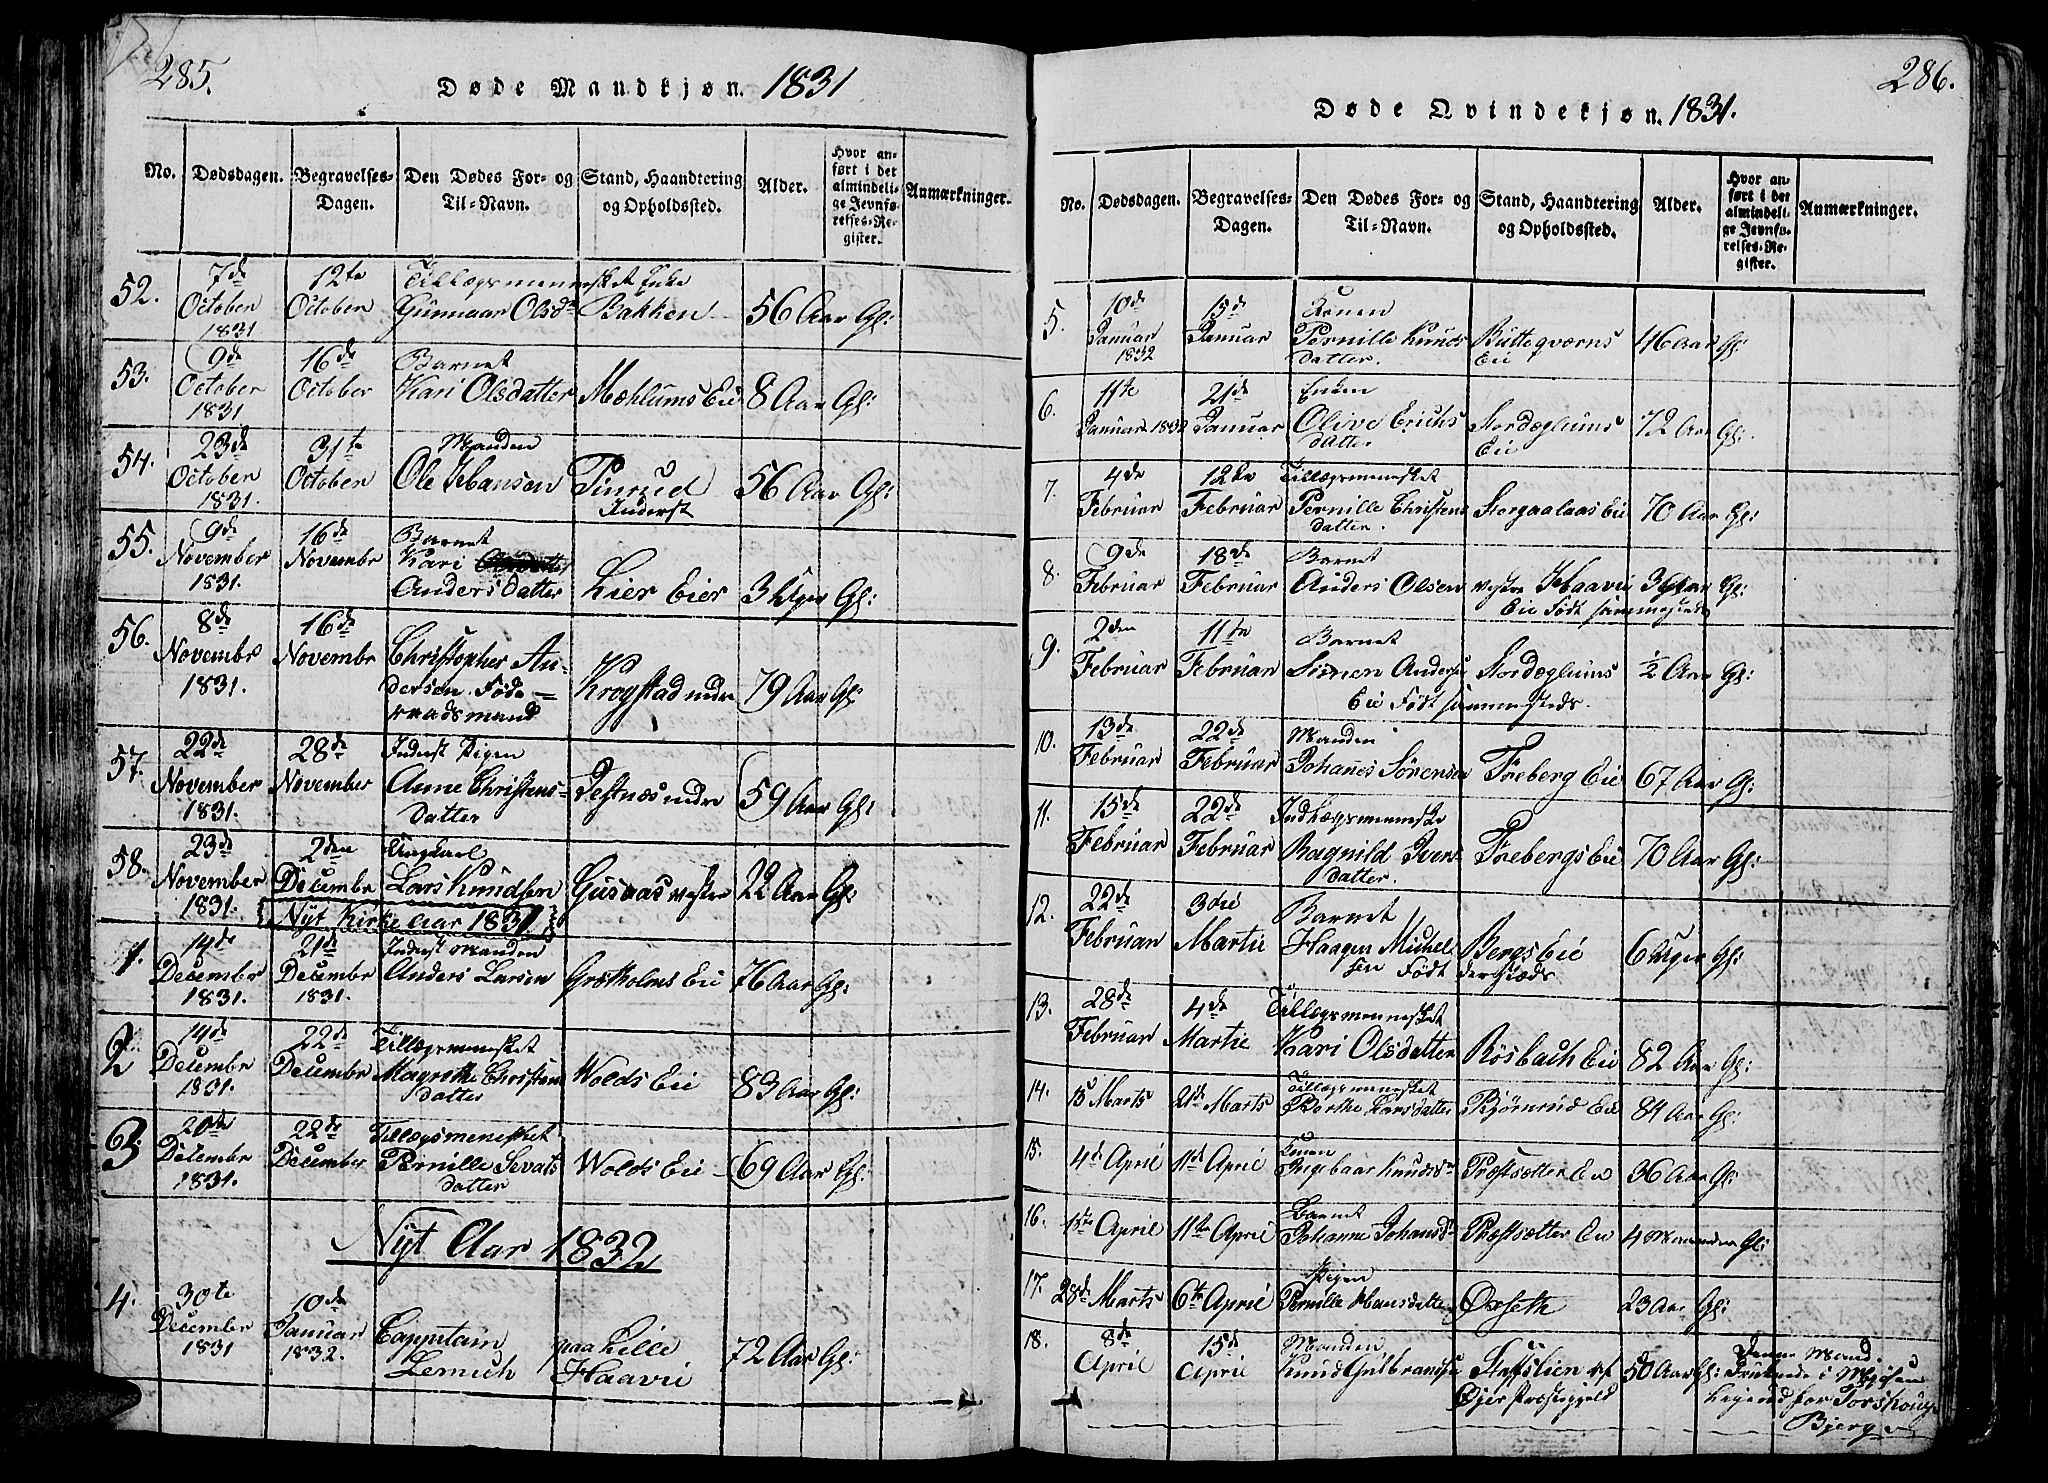 285.
Døde Mandkjøn. 1831
No.
Dødsdagen.
Begravelses-
Dagen.
Den Dødes For- og
Til-Navn.
Stand, Haandtering
og Opholdssted.
Alder.
Hvor an-
ført i det
almindeli-
ge Jevnfø-
relses-Re-
gister.
Anmærkninger.
52. 7de October 1831 12te October Tillægsmennesket Enke
Gunnaar Olsdr Bakken 56 Aar Gl:
53. 9de October 1831 16de October Barnet
Kari Olsdatter Mæhlums Eie 8 Aar Gl:
54. 23de October 1831. 31te October Manden
Ole Hansen Pinrud
Inderst 56 Aar Gl:
55. 9de November 1831. 16de Novembr Barnet
Kari
Andersdatter Lier Eier 3 Uger Gl:
56. 8de Novembr 1831. 16de Novembr Christopher An-
dersen Føde-
raadsmand Krogstad nedre 79 Aar Gl:
57. 22de November 1831. 28de November Inderst Pigen
Anne Christens-
datter nedre 59 Aar Gl:
58. 23de November 1831. 2den Decembr Ungkarl
Lars Knudsen Gusaas vestre 22 Aar Gl:
Nyt Kirke Aar 1831
1. 14de Decembr 1831. 21de Decembr 1831. Inderst Manden
Anders Larsen Grøtholms Eie 76 Aar Gl:
2. 14de Decembr 1831. 22de Decembr Tillægsmennesket
Magrethe Christens
datter Wolds Eie 83 Aar Gl:
3. 20de Decembr 1831. 22de December Tillægsmennesket
Pernille Sevats
datter Wolds Eie 69 Aar Gl:
Nyt Aar 1832
4. 30te Decembr 1831 10de Januar 1832. Cappitain
Lemich paa Lille
Haavie 72 Aar Gl:
286.
Døde Qvindekjøn. 1831.
No.
Dødsdagen.
Begravelses-
Dagen.
Den Dødes For- og
Til-Navn.
Stand, Haandtering
og Opholdssted.
Alder.
Hvor an-
ført i det
almindeli-
ge Jevnfø-
relses-Re-
gister.
Anmærkninger.
5. 10de Januar 1832 15de Januar Konen
Pernille Knuds
datter. Butteqværns
Eie 46 Aar Gl:
6. 11te Januar 1832 21de Januar Enken
Olive Erichs
datter Stordæhlums
Eie 72 Aar Gl:
7. 4de Februar 12te Februar Tillægsmennesket
Pernille Christens
datter. Storgaalaas Eie 70 Aar Gl:
8. 9de Februar 18de Februar Barnet
Anders Olsen vestre Haavie
Eie Født sammesteds 3 Aar Gl:
9. 2den Februar 11te Februar Barnet
Simen Anders Stordæhlums
Eie Født sammesteds. ½ Aar Gl:
10. 13de Februar 22de Februar Manden
Johanes Sørensen Freberg Eie 67 Aar Gl:
11. 15de Februar 22de Februar Indlægsmenneske
Ragnild Ivers
datter. Frebergs Eie 70 Aar Gl:
12. 22de Februar 3die Martie Barnet
Haagen Michel
sen Født dersteds Bergs Eie 6 Uger Gl:
13. 28de Februar 4de Martie Tillægsmennesket
Kari Olsdatter Røsbach Eie 82 Aar Gl:
14. 15 Marts 21de Marts Tillægsmennesket
Berthe Larsdatter Bjørnrud Eie 84 Aar Gl:
15. 4de April 11de April Konen
Ingebaar Knudsdr Præstsetter Eie 36 Aar Gl:
16. 15te April 11te April Barnet
Johanne Johansdr Præstsetter Eie 4 Maaneder Gl:
17. 28de Marts 6te April Pigen
Pernille Hansdatter Oxseth 23 Aar Gl:
18. 8de April 15de April Manden
Knud Gulbrandsen Staffslien af
Øier Præstegjeld 50 Aar Gl: Denne Mand
Druknede i Mjøsen
for
Bjerg